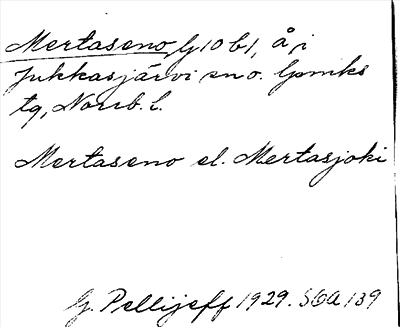 Mertaseno, G10 b1, å, i
Jukkasjärvi sn o. lpmks
tg, Norrb. l.
Mertaseno el. Mertasjoki
G. Pellijeff 1929. SOA 139